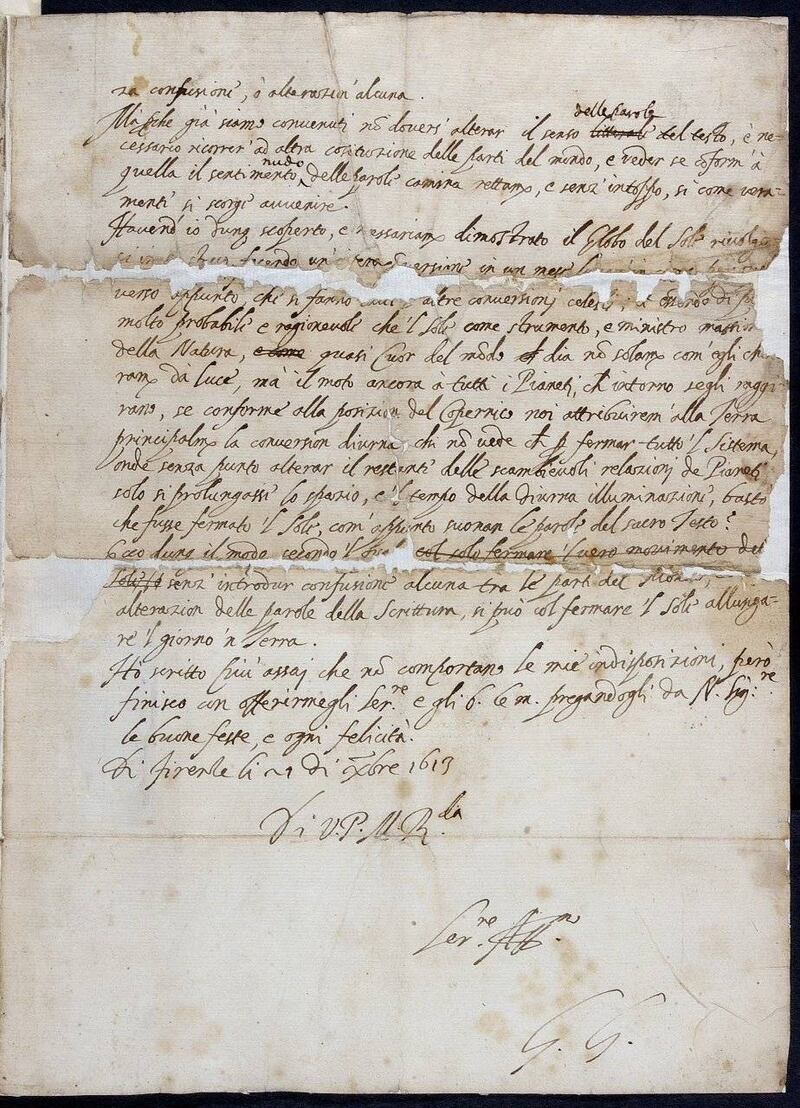 za confusione, ò alterazion' alcuna.
Mà che già siamo convenuti nõ dovers' alterar il senso litterale delle parole del testo, è ne-
cessario ricorrer' ad altra costituzione delle parti del mondo, e veder se cõform' à
quella il sentimento nudo delle parole camina rettamẽ, e senz' intoppo, si come vera-
mente si scorge avvenire.
Havend' io dunq scoperto, e necessariamẽ dimostrato il Globo del Sole rivolge
un' intera conversione in un mese
verso appunto che si fanno altre conversionj celesti,
molto probabile e ragionevole che 'l Sole come strumento, e ministro massim
della Natura, e come quasi Cuor del mõdo dia nõ solamẽ com' egli ch
ramẽ dà luce, mà il moto ancora à tutti i Pianeti, ch' intorno segli raggi-
rano, se conforme alla posizion del Copernico noi attribuirem' alla Terra
principalmẽ la conversion diurna, chi nõ vede fermar tutto 'l Sistema,
onde senza punto alterar il restante delle scambievoli relazioni de Pianeti
solo si prolungasse lo spazio, e 'l tempo della diurna illuminazione, basto
che fusse fermato 'l Sole, com' appunto suonan le parole del sacro Testo?
Ecco dunq il modo secondo 'l col solo fermare 'l vero movimento del
Sole senz' introdur confusione alcuna tra le parti del Mondo,
alterazion delle parole della Scrittura, si può col fermare 'l Sole allunga-
re 'l giorno 'n Terra.
Ho scritto più assaj che nõ comportano le mie indisposizioni, però
finisco con offerirmegli Ser.re e gli b. le m. pregandogli da N. Sig.re
le buone feste, e ogni felicità.
Di Firenze li 21 di Xbre 1613
Di V.P.M.R.da
Ser.re Aff.mo
G. G.